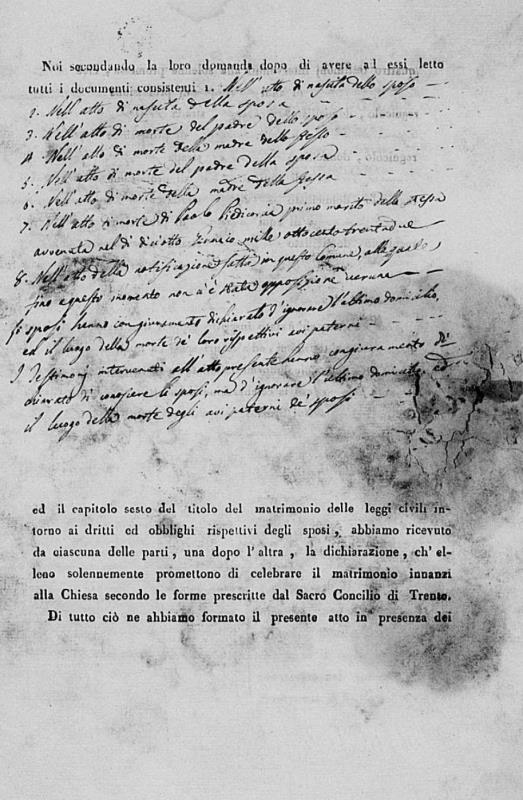 Noi secondando la loro domanda dopo di avere ad essi letto
tutti i documenti consistenti 1. Nell'atto di nascita dello sposo
2. Nell'atto di nascita della sposa
3. Nell'atto di morte del padre dello sposo
4. Nell'atto di morte della madre dello stesso
5. Nell'atto di morte del padre della sposa
6. Nell'atto di morte della madre della stessa
7. Nell'atto di morte di Paolo primo marito della stessa
avvenuta nel dì diciotto mille ottocento trentadue
8. Nell'atto della notificazione fatta in questo Comune, alla quale,
fino a questo momento non v'è stata opposizione veruna
Gli sposi hanno con giuramento dichiarato d'ignorare l'ultimo domicilio,
ed il luogo della morte de' loro rispettivi avi paterni
I Testimonj intervenuti all'atto presente hanno con giuramento di
chiarato di conoscere li sposi, ma d'ignorare l'ultimo domicilio, ed
il luogo della morte degli avi paterni de' sposi
ed il capitolo sesto del titolo del matrimonio delle leggi civili in-
torno ai dritti ed obblighi rispettivi degli sposi, abbiamo ricevuto
da ciascuna delle parti, una dopo l'altra, la dichiarazione, ch'el-
leno solennemente promettono di celebrare il matrimonio innanzi
alla Chiesa secondo le forme prescritte dal Sacro Concilio di Trento.
Di tutto ciò ne abbiamo formato il presente atto in presenza dei